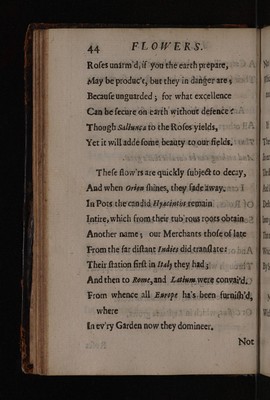 44 FLOWERS.
Roses unarm'd, if you the earth prepare,
May be produc't, but they in danger are;
Because unguarded; for what excellence
Can be secure on earth without defence?
Though Saliunca to the Roses yields,
Yet it will adde some beauty to our fields.
These flow'rs are quickly subject to decay,
And when Orion shines, they fade away.
In Pots the candid Hyacinths remain
Intire, which from their tub'rous roots obtain
Another name; our Merchants those of late
From the far distant Indies did translate:
Their station first in Italy they had;
And then to Rome, and Latium were convai'd,
From whence all Europe ha's been furnish'd,
where
In ev'ry Garden now they domineer.
Not